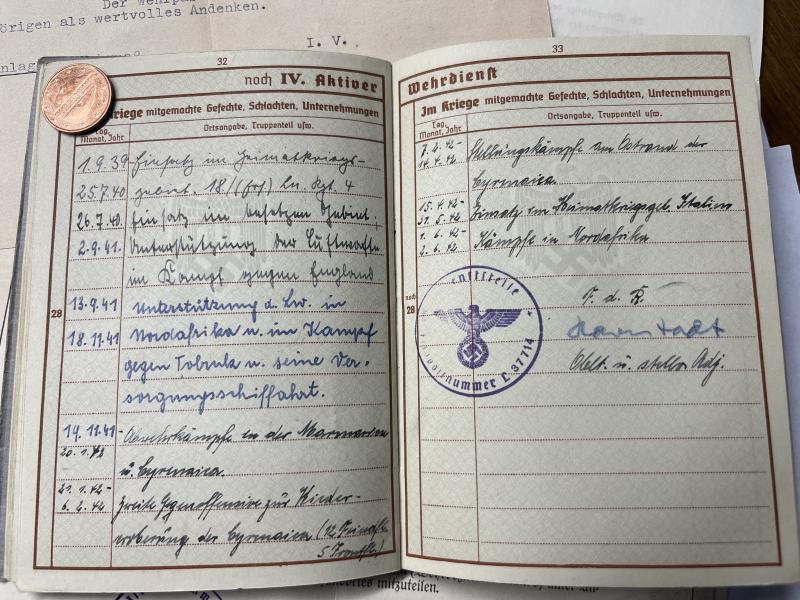 Der
örigen als wertvolles Andenken.
I. V.
32
noch IV. Aktiver
Kriege mitgemachte Gefechte, Schlachten, Unternehmungen
Tag, Monat, Jahr
Ortsangabe, Truppenteil usw.
1.9.39- Einsatz im Heimatkriegs-
25.7.40 gebiet. 18/( Ln. Rgt. 4
26.7.40. Einsatz im besetzen Gebiet.
2.9.41. Unterstützung der Luftwaffe
im Kampf gegen England
28
13.9.41 Unterstützung d. Lw. in
18.11.41 Nordafrika u. im Kampf
gegen Tobruk u. seine Ver-
sorgungsschiffahrt.
19.11.41- Abwehrkämpfe in der Marmarica
20.1.42
u. Cyrenaica.
21.1.42- Zweite Gegenoffensive zur Wieder-
6.2.42
eroberung der Cyrenaica (12
5
33
Wehrdienst
Im Kriege mitgemachte Gefechte, Schlachten, Unternehmungen
Tag, Monat, Jahr
Ortsangabe, Truppenteil usw.
7.2.42- Stellungskämpfe am Ostrand der
14.4.42
Cyrenaica.
15.4.42 Einsatz im Heimatkriegsgeb. Italien
31.5.42
1.6.42- Kämpfe in Nordafrika
2.6.42
noch 28
F. d. R.
Oblt. u. stellv. Adj.
nummer L 37714
mitzuteilen.